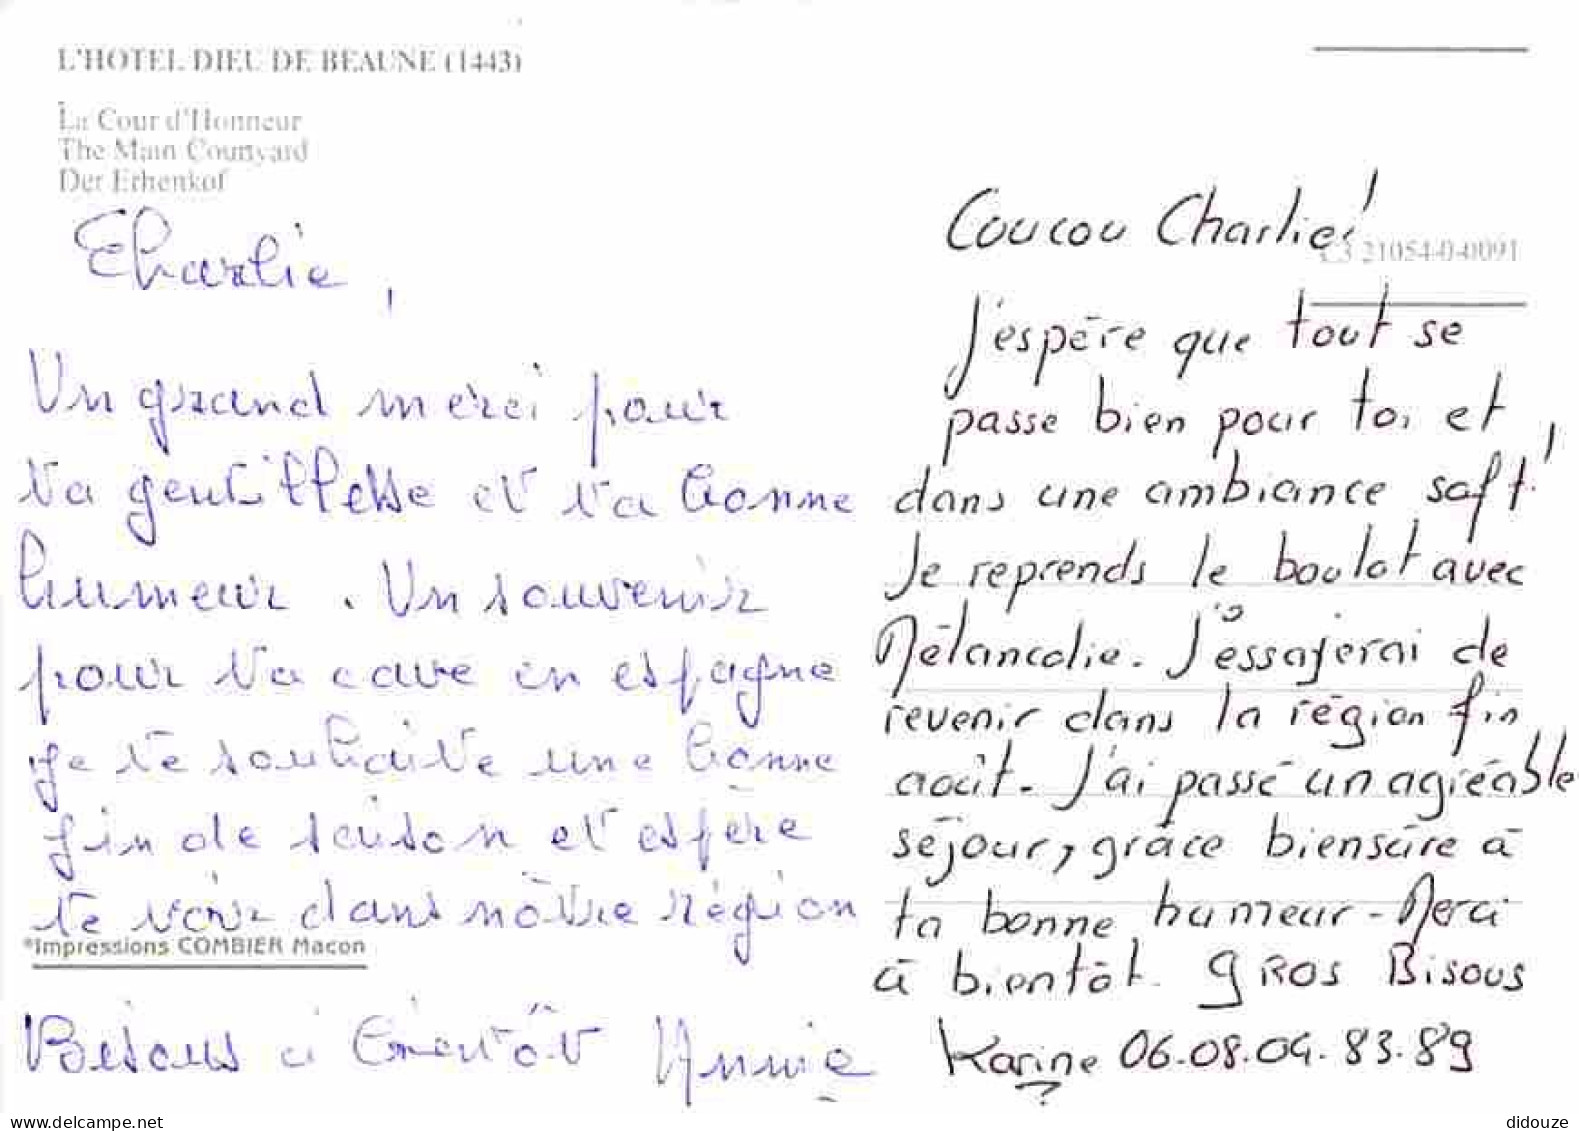 L'HOTEL DIEU DE BEAUNE (1443)
La Cour d'Honneur
The Main Courtyard
Der Erhenkof
Charlie,
Un grand merci pour
ta gentillesse et ta bonne
humeur. Un souvenir
pour ta cave en espagne
je te souhaite une bonne
fin de saison et espère
te voir dans nôtre région
*Impressions COMBIER Macon
Bisous à bientôt Annie
Coucou Charlie!
C3 21054-0-0091
J'espère que tout se
passe bien pour toi et,
dans une ambiance soft!
Je reprends le boulot avec
Mélancolie. J'essajerai de
revenir dans la région fin
août. J'ai passé un agréable
séjour, grâce biensûre à
ta bonne humeur - Merci
à bientôt. gROS Bisous
Karine 06.08.04.83.89
www.delcampe.net
didouze